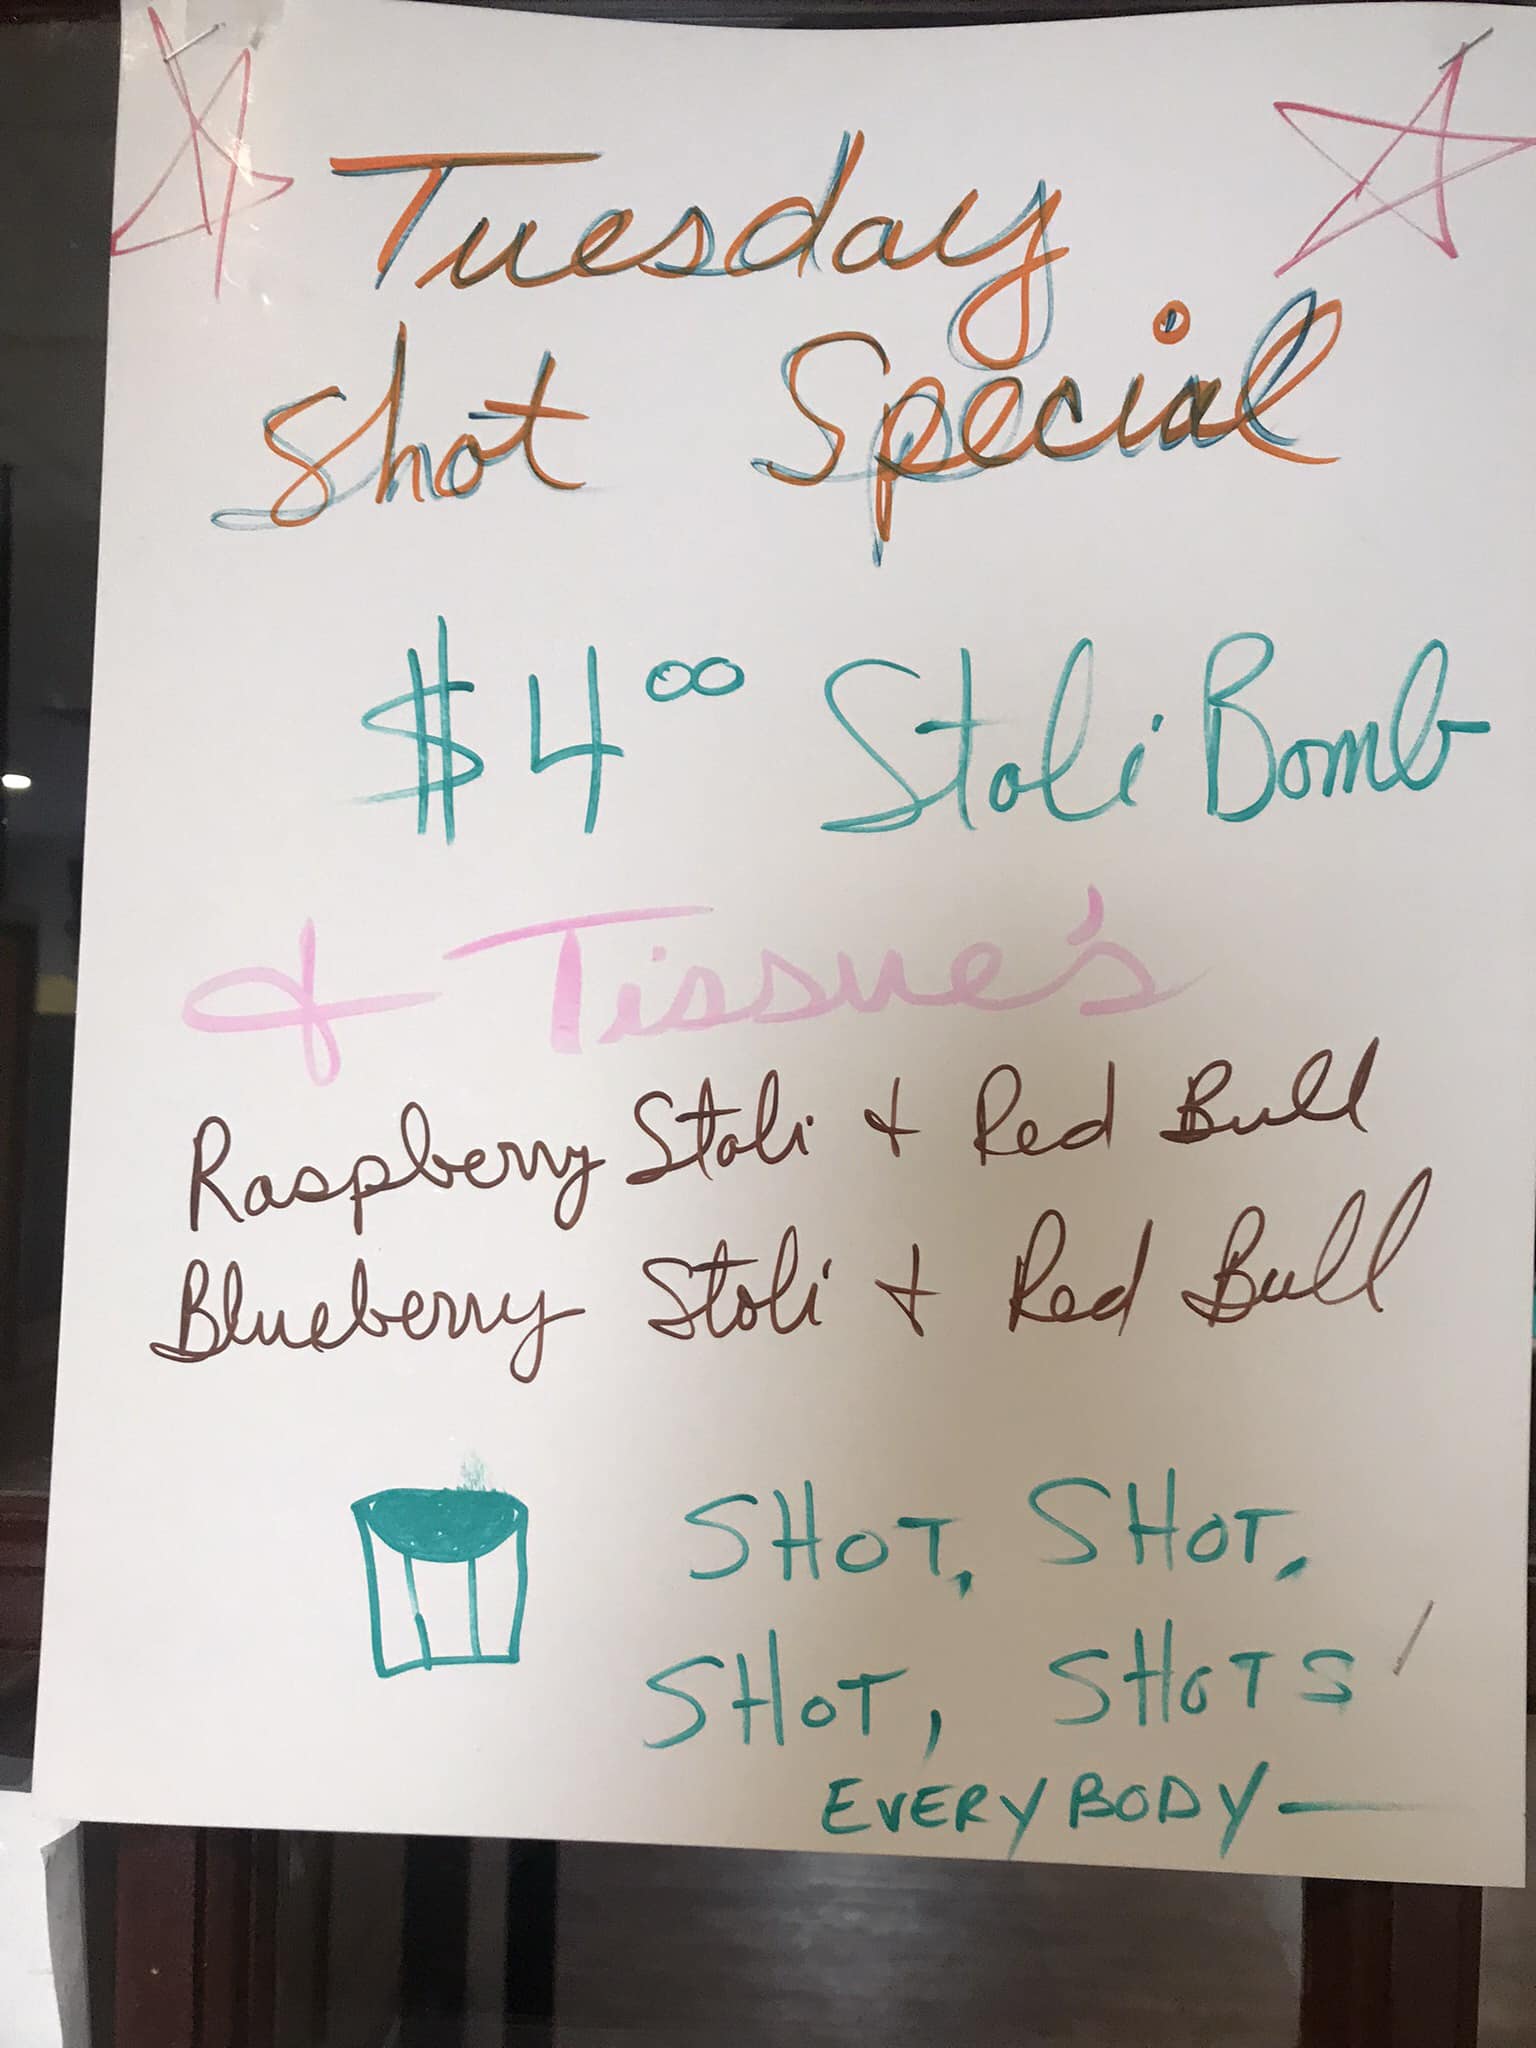 Tuesday
Shot Special
$4.00 Stoli Bomb
& Tissue's
Raspberry Stoli + Red Bull
Blueberry Stoli + Red Bull
SHOT, SHOT,
SHOT, SHOTS
EVERYBODY—